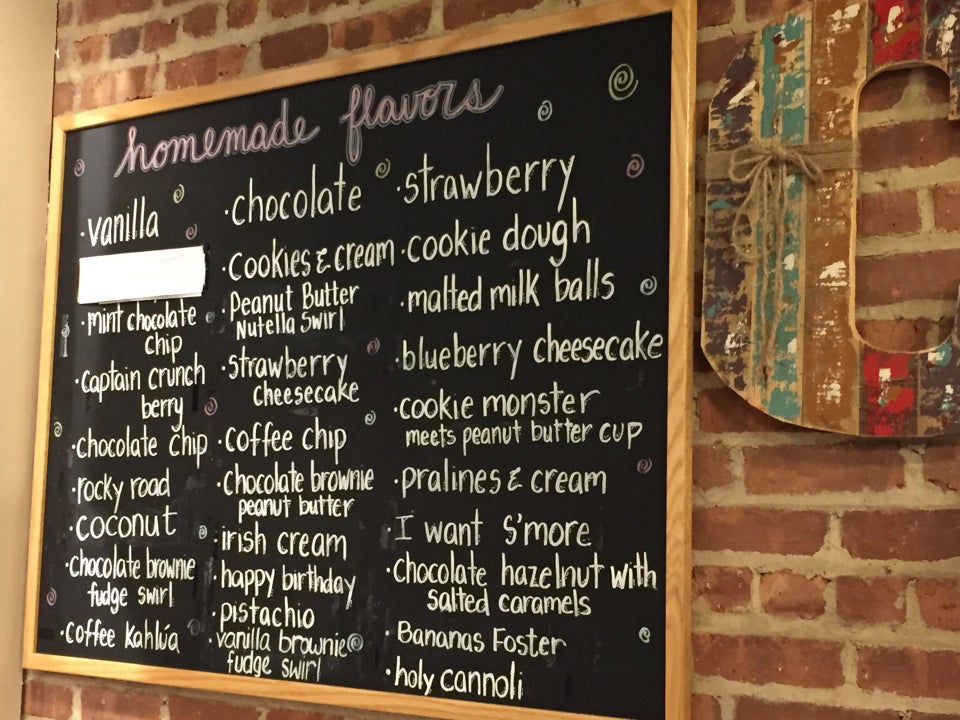 homemade flavors
·vanilla
·mint chocolate
chip
·captain crunch
berry
·chocolate chip
·rocky road
·coconut
·chocolate brownie
fudge swirl
·coffee Kahlúa
·chocolate
·cookies & cream
·Peanut Butter
Nutella Swirl
·strawberry
cheesecake
·coffee chip
·chocolate brownie
peanut butter
·irish cream
·happy birthday
·pistachio
·vanilla brownie
fudge swirl
·strawberry
·cookie dough
·malted milk balls
·blueberry cheesecake
·cookie monster
meets peanut butter cup
·pralines & cream
·I want S'more
·chocolate hazelnut with
salted caramels
·Bananas Foster
·holy cannoli